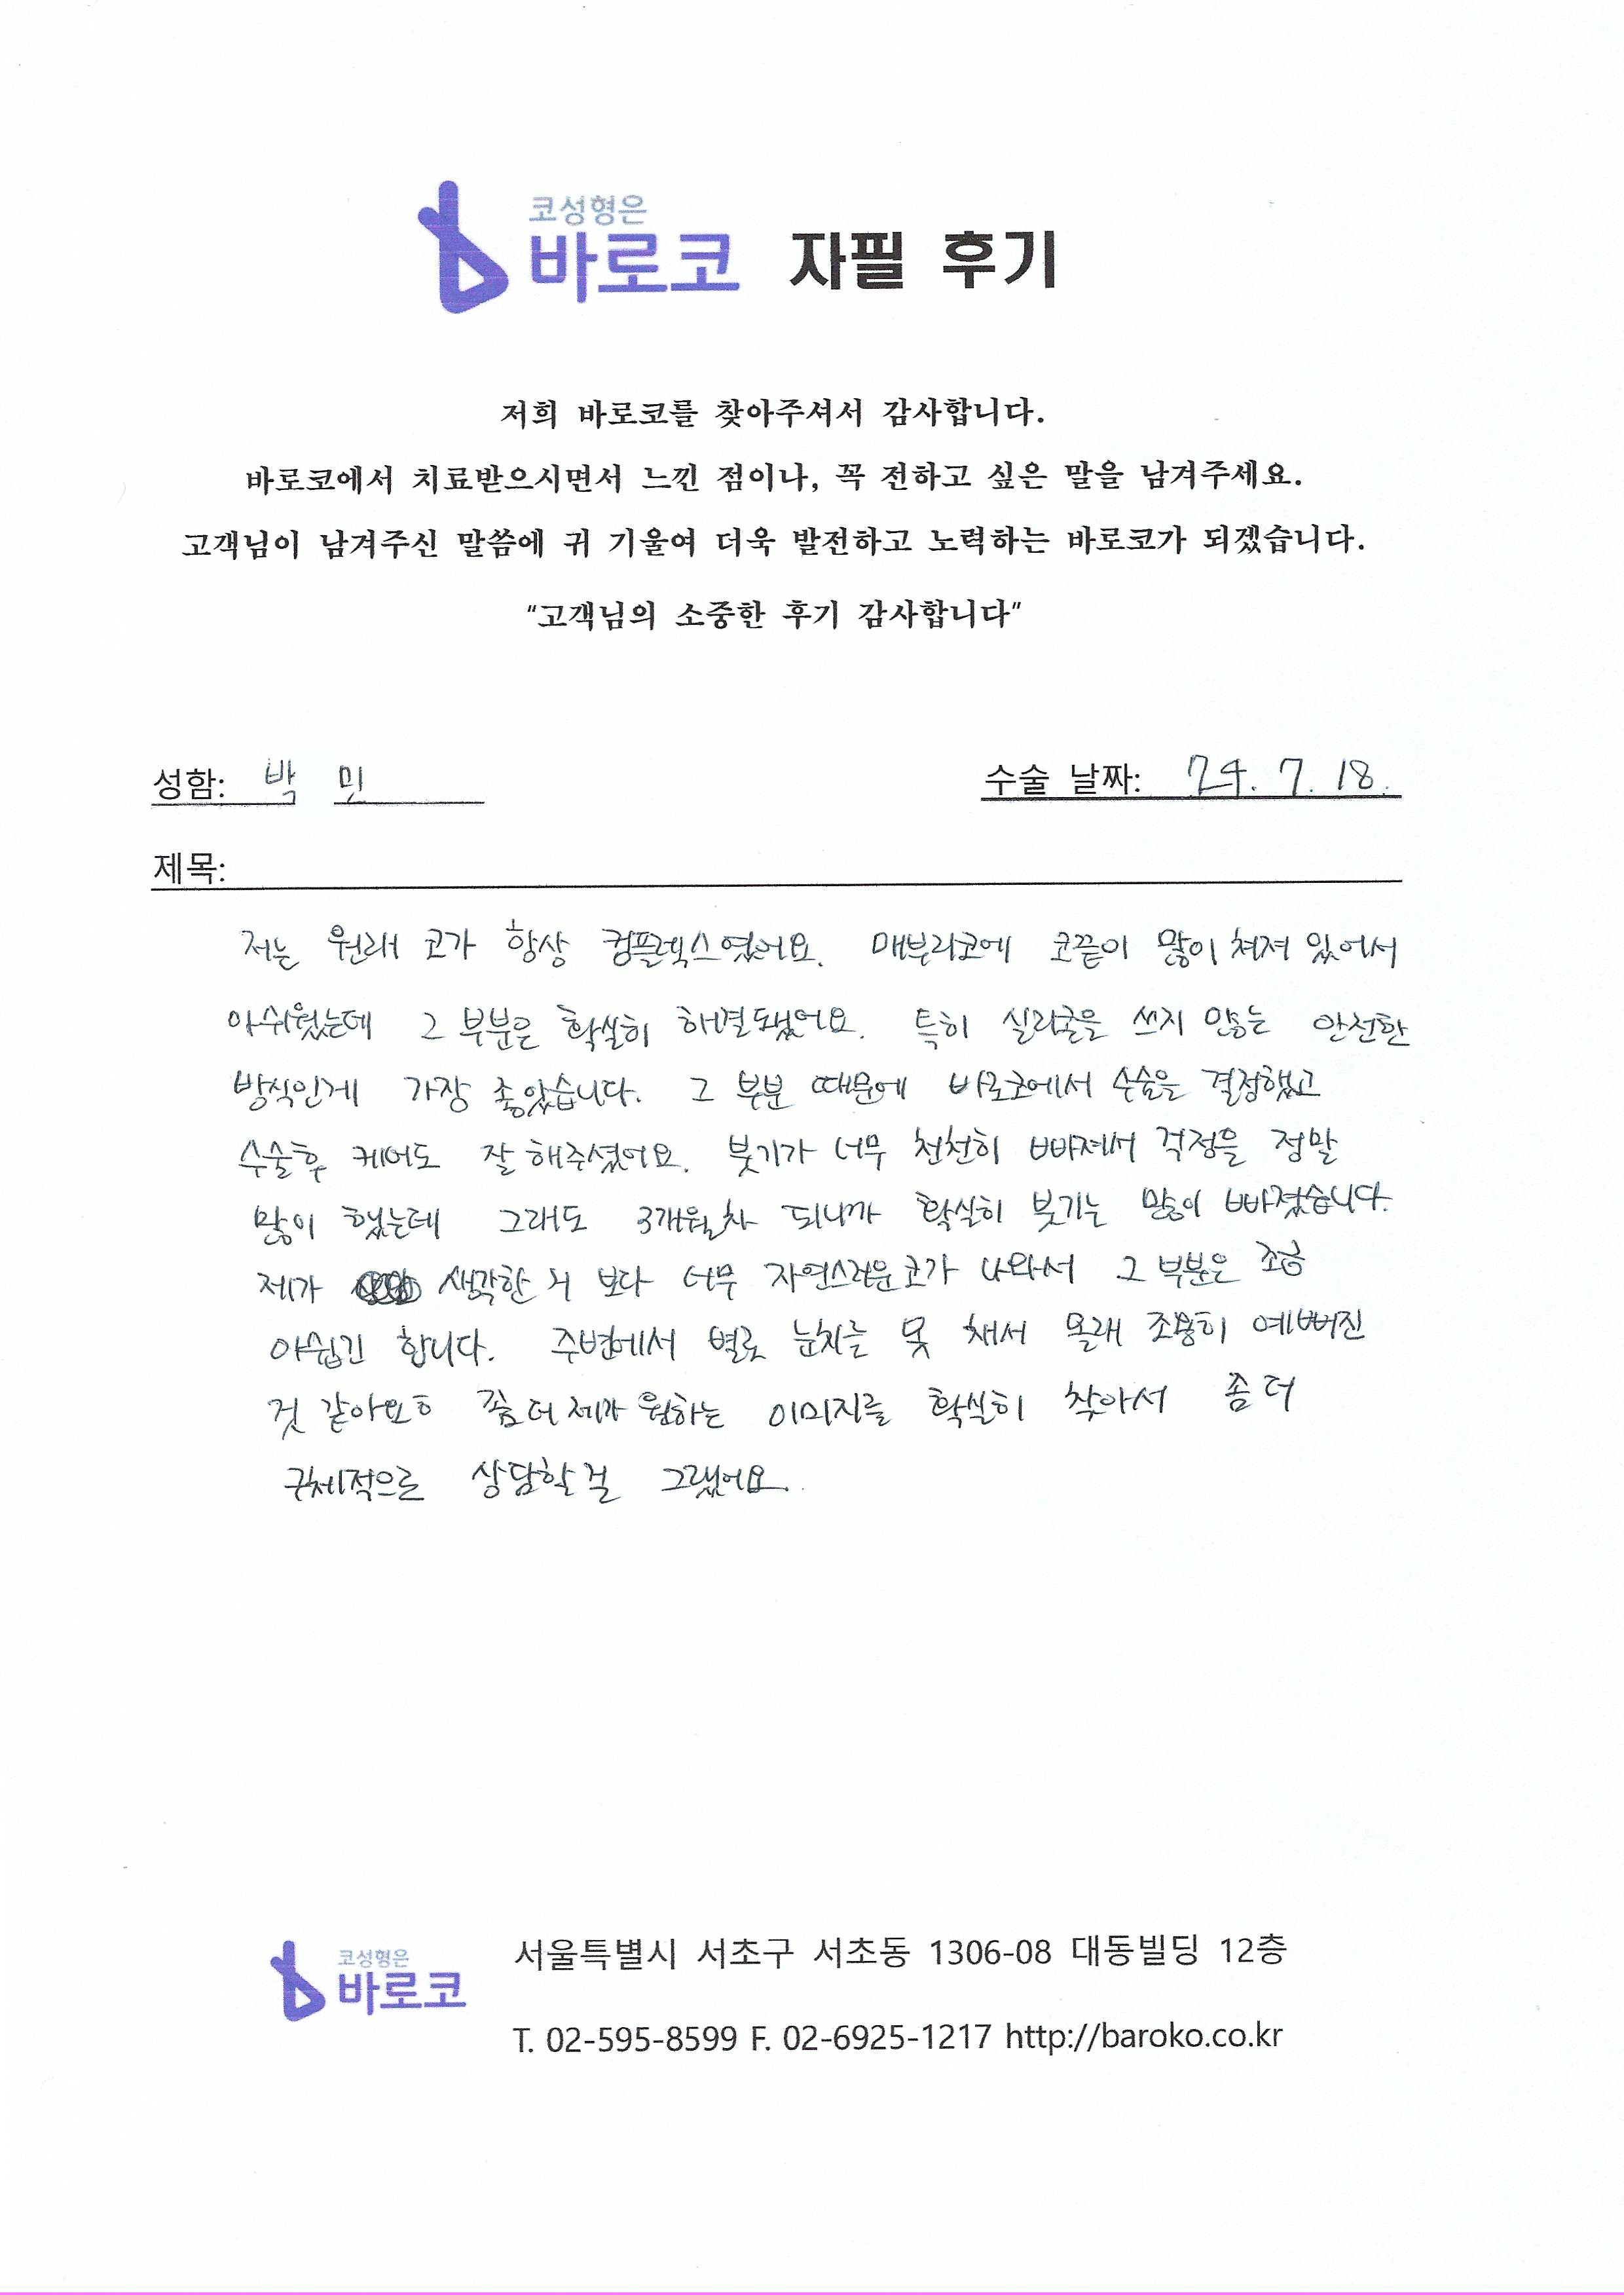 코성형은
바로코 자필 후기
저희 바로코를 찾아주셔서 감사합니다.
바로코에서 치료받으시면서 느낀 점이나, 꼭 전하고 싶은 말을 남겨주세요.
고객님이 남겨주신 말씀에 귀 기울여 더욱 발전하고 노력하는 바로코가 되겠습니다.
"고객님의 소중한 후기 감사합니다"
성함: 박 민 수술 날짜: 24. 7. 18.
제목:
저는 원래 코가 항상 컴플렉스였어요. 매부리코에 코끝이 많이 쳐져 있어서
아쉬웠는데 그 부분은 확실히 해결됐어요. 특히 실리콘을 쓰지 않는 안전한
방식인게 가장 좋았습니다. 그 부분 때문에 바로코에서 수술을 결정했고
수술후 케어도 잘 해주셨어요. 붓기가 너무 천천히 빠져서 걱정을 정말
많이 했는데 그래도 3개월차 되니까 확실히 붓기는 많이 빠졌습니다.
제가 생각한 거 보다 너무 자연스러운 코가 나와서 그 부분은 조금
아쉽긴 합니다. 주변에서 별로 눈치를 못 채서 몰래 조용히 예뻐진
것 같아요ㅎ 좀 더 제가 원하는 이미지를 확실히 찾아서 좀 더
구체적으로 상담할 걸 그랬어요.
코성형은
바로코
서울특별시 서초구 서초동 1306-08 대동빌딩 12층
T. 02-595-8599 F. 02-6925-1217 http://baroko.co.kr